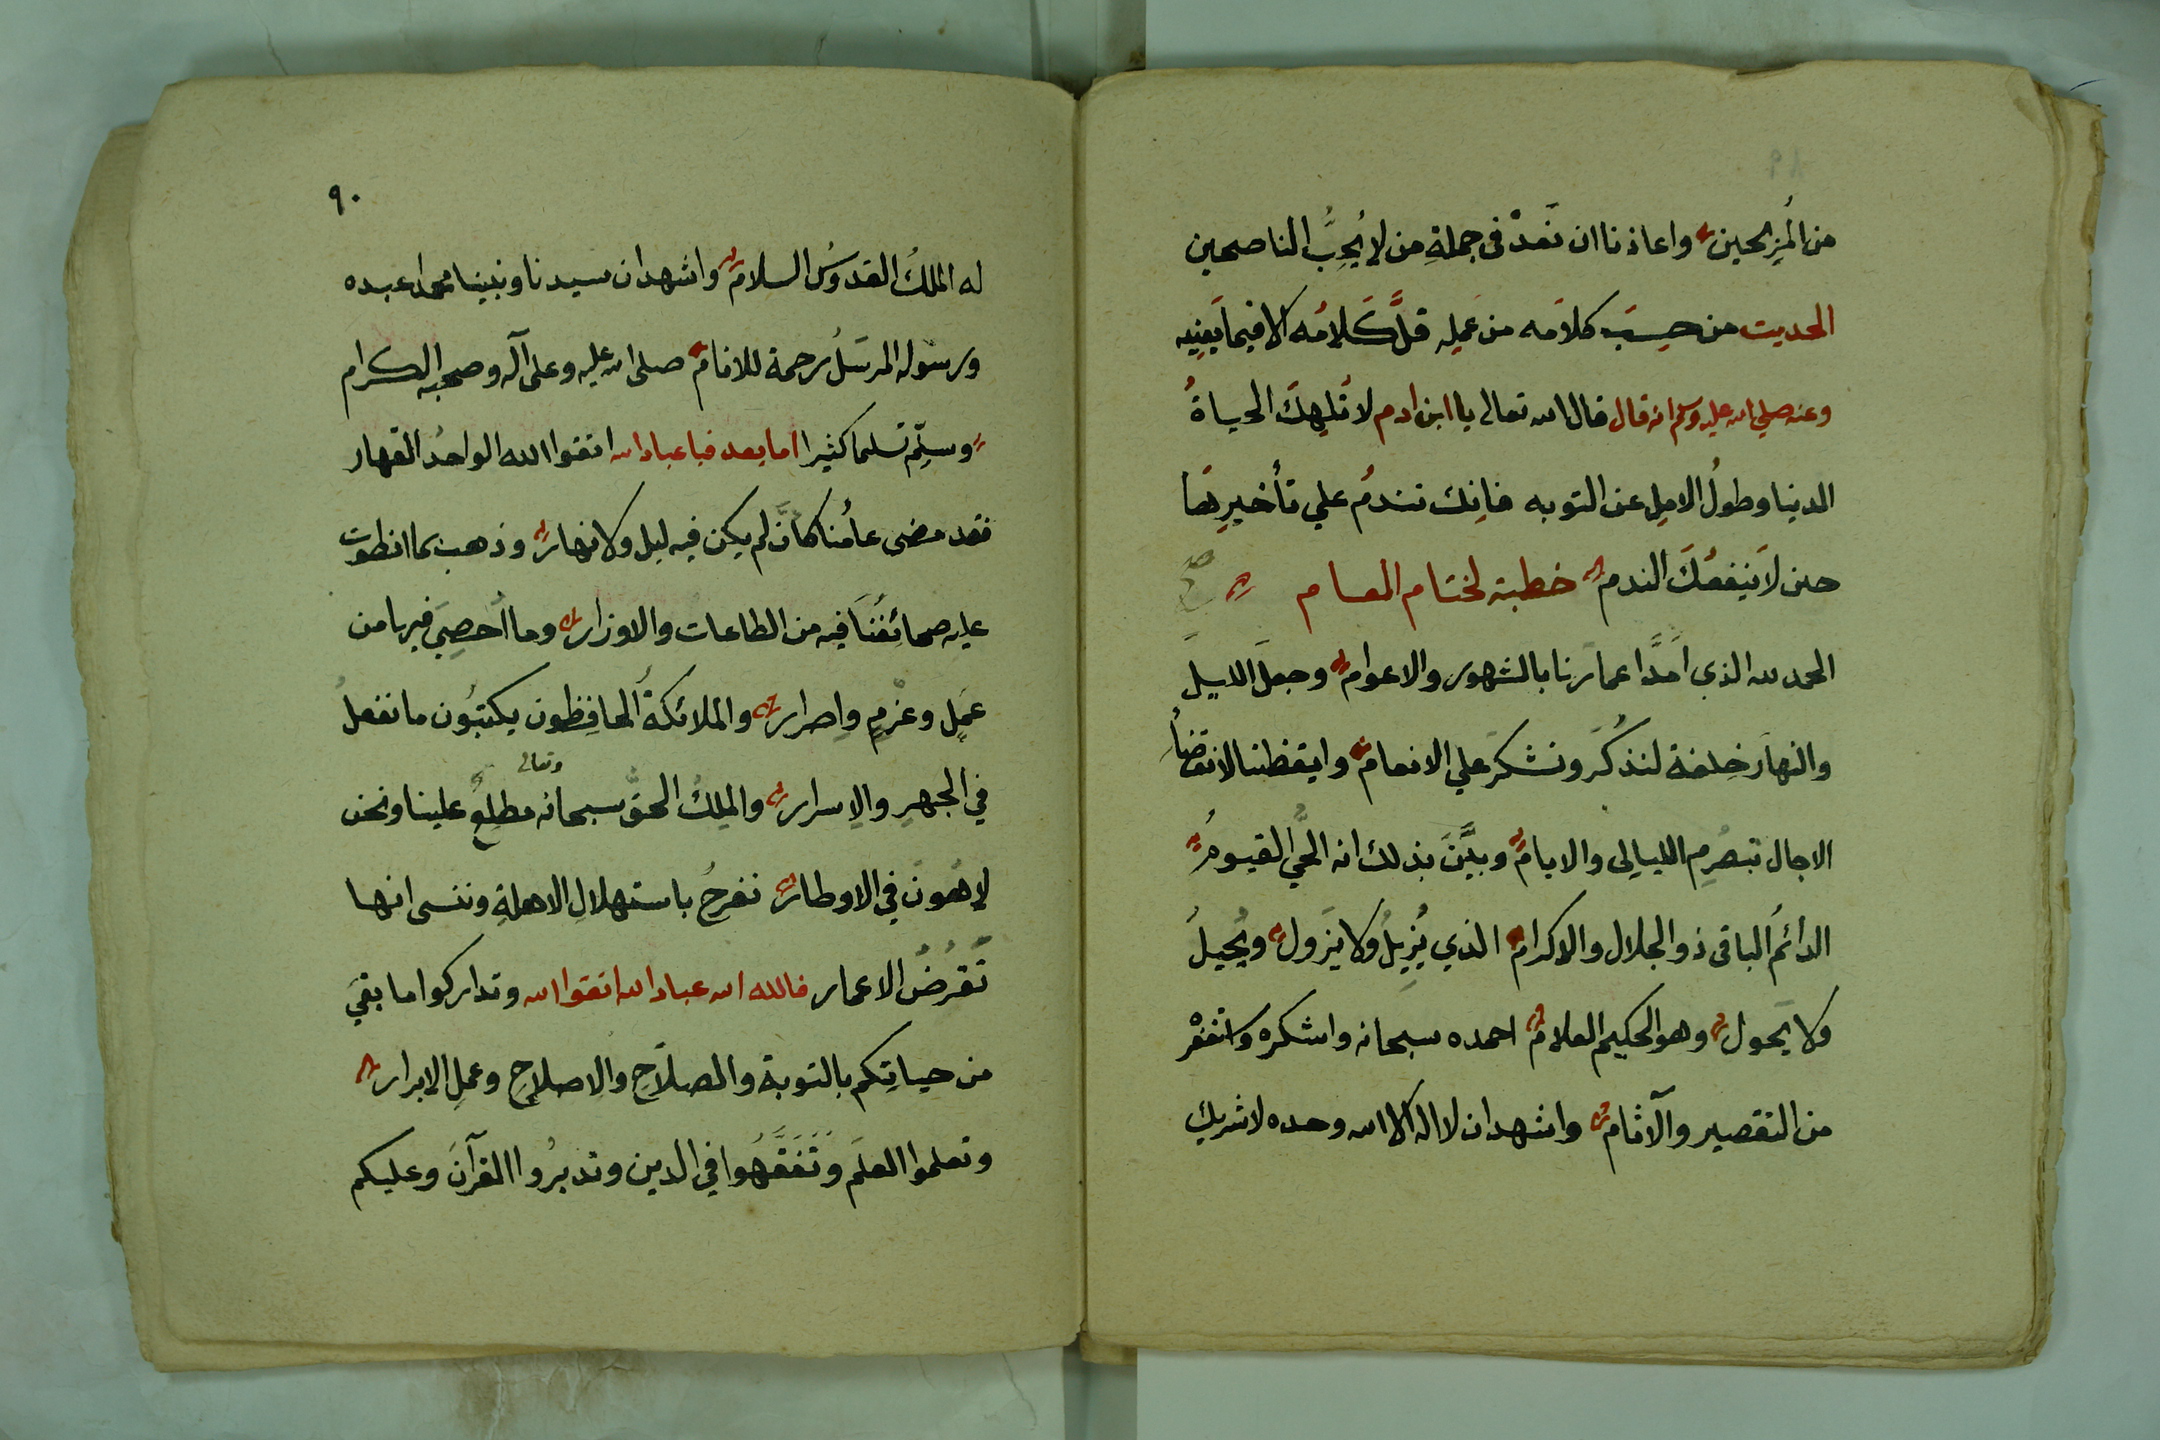 ٨٩
من المُرِبحين واعاذنا ان نَعدْ في جملةِ من لا يُحِبُّ الناصحين
الحديت من حسِبَ كلاَمه من عَمِله قلَّ كَلامُه الا فيما يَعنِيه
وعنه صلي الله عليه وسلم انه قال قال الله تعالى يا ابن ادم لا تُلهِكَ الحياةُ
الدنيا وطولُ الامِل عن التوبه فاِنك تندمُ علي تأخيرِهَا
حين لاَ ينفعُكَ الندم خطبة لختام العام
الحمد لله الذي اَمَدَّ اعمارَنا بالشهور والاعوام وجعلَ الليلَ
والنهاَر خِلفة لنذكُرَ ونشكرَ علي الانعام وايقظنا لانقضاُ
الاجال تبصرِم الليالِي والايامُ وبيَّنَ بذلك انه الحيُّ القيومُ
الدائمُ الباقى ذو الجلال والاكرامُ الذي يُزِيلُ ولا يَزول ويُحيلُ
ولا يَحول وهو الحكيم العلامُ احمده سبحانه واشكره واستغفْر
من التقصير والآثام واشهد ان لا اله الا الله وحده لا شريك
٩٠
له الملكُ القدوسُ السلامُ واشهد ان سيدنا ونبينا محمدا عبده
ورسوله المرسَلُ رحمة للانام صلى الله عليه وعلى آله وصحبِه الكرام
وسلِّم تسلما كثيرا اما بعد فيا عباد الله اتقوا الله الواحُد القهار
فقد مضى عامُنا كانَّ لم يكن فيه ليل ولا نهار وذهب بما انطوت
عليه صحائفُنَا فيه من الطاعات والاوزار وما اُحصِيَ فيها من
عَمٍل وعْزمٍ واِصرار والملائكةُ الحافِظون يكتبُون ما نفعلُ
في الجهرِ والاِسرار والملِكُ الحقُّ سبحانه وتعالى مطلِعٌ علينا ونحن
لاهُونَ في الاوطار نفرحُ باستهلالِ الاهلةِ وننسى انها
تَقرُضُ الاعمار فالله الله عباد الله اتقوا الله وتداركوا ما بقيَ
من حياتِكم بالتوبة والصلاَحِ والاصلاحِ وعملِ الابرار
وتعلموا العلَم وَتَفَقَّهُوا في الدين وتدبرُوا القرآنَ وعليكم